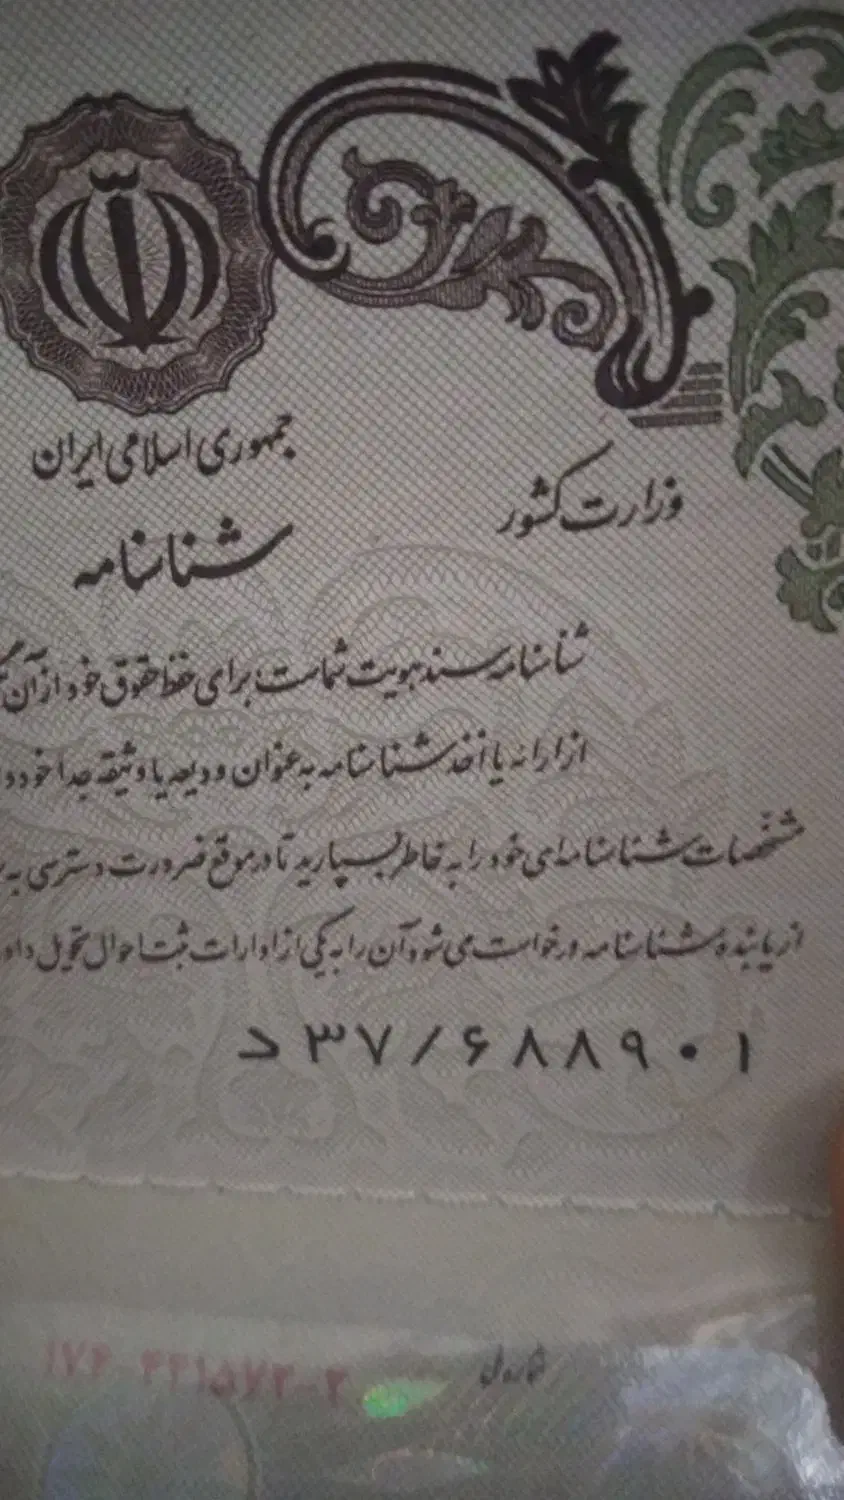 جمهوری اسلامی ایران
وزارت کشور
شناسنامه
شناسنامه سند هویت شماست برای حفظ حقوق خود از آن
از ارائه یا اخذ شناسنامه به عنوان ودیعه یا وثیقه جداً خودد
مشخصات شناسنامه‌ای خود را به خاطر بسپارید تا در موقع ضرورت دسترسی به
از یابنده شناسنامه درخواست می شود آن را به یکی از ادارات ثبت احوال تحویل داد
د۳۷/۶۸۸۹۰۱
شماره ملی